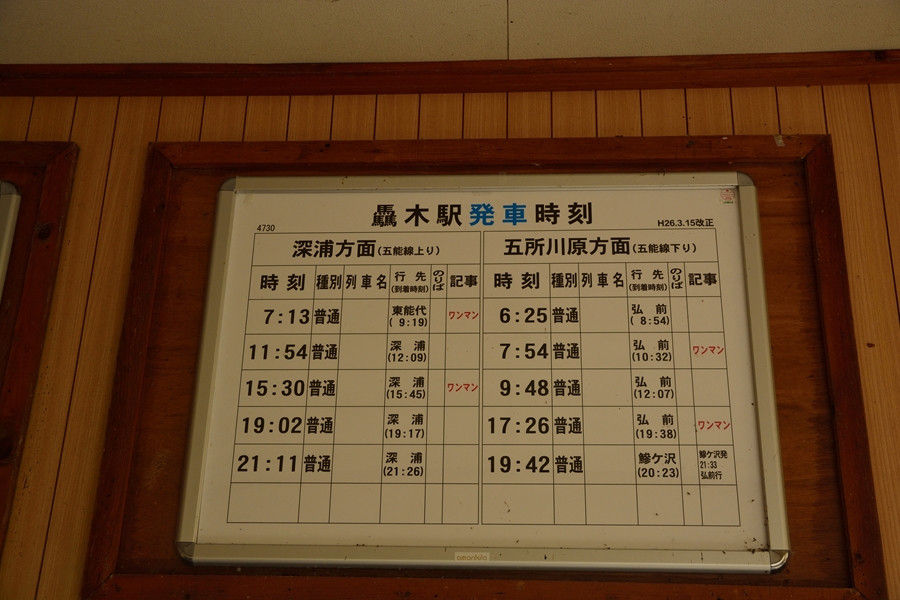 驫木駅発車時刻
4730
H26.3.15改正
深浦方面(五能線上り)
時刻 種別 列車名 行先(到着時刻) のりば 記事
7:13 普通 東能代(9:19) ワンマン
11:54 普通 深浦(12:09)
15:30 普通 深浦(15:45) ワンマン
19:02 普通 深浦(19:17)
21:11 普通 深浦(21:26)
五所川原方面(五能線下り)
時刻 種別 列車名 行先(到着時刻) のりば 記事
6:25 普通 弘前(8:54)
7:54 普通 弘前(10:32) ワンマン
9:48 普通 弘前(12:07)
17:26 普通 弘前(19:38) ワンマン
19:42 普通 鰺ケ沢(20:23) 鰺ケ沢発 21:33 弘前行